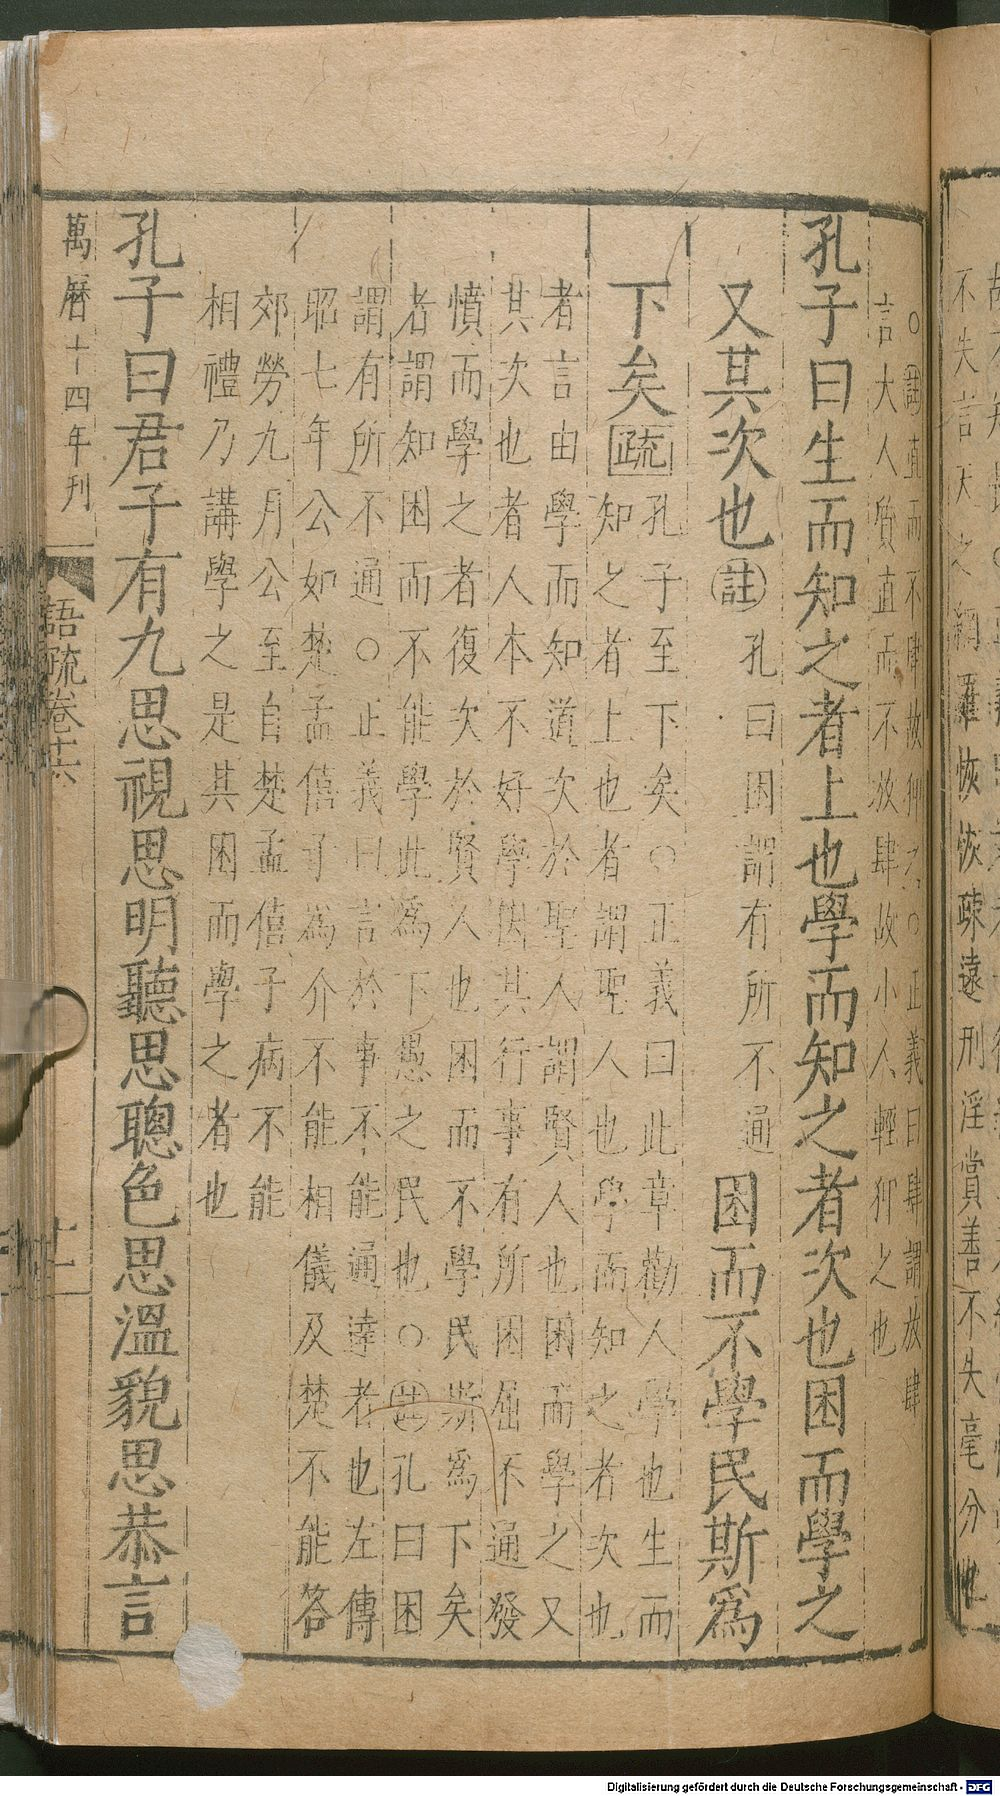 不失言天之網羅恢恢疎遠刑淫賞善不失毫分也
○註直而不肆故狎之○正義曰肆謂放肆
言大人質直而不放肆故小人輕狎之也
孔子曰生而知之者上也學而知之者次也困而學之
又其次也註孔曰困謂有所不通困而不學民斯爲
下矣疏孔子至下矣○正義曰此章勸人學也生而
知之者上也者謂聖人也學而知之者次也
者言由學而知道次於聖人謂賢人也困而學之又
其次也者人本不好學因其行事有所困屈不通發
憤而學之者復次於賢人也困而不學民斯爲下矣
者謂知困而不能學此爲下愚之民也○註孔曰困
謂有所不通○正義曰言於事不能通達者也左傳
昭七年公如楚孟僖子爲介不能相儀及楚不能答
郊勞九月公至自楚孟僖子病不能
相禮乃講學之是其困而學之者也
孔子曰君子有九思視思明聽思聰色思溫貌思恭言
萬曆十四年刊 語疏卷十六 十一
Digitalisierung gefördert durch die Deutsche Forschungsgemeinschaft - DFG